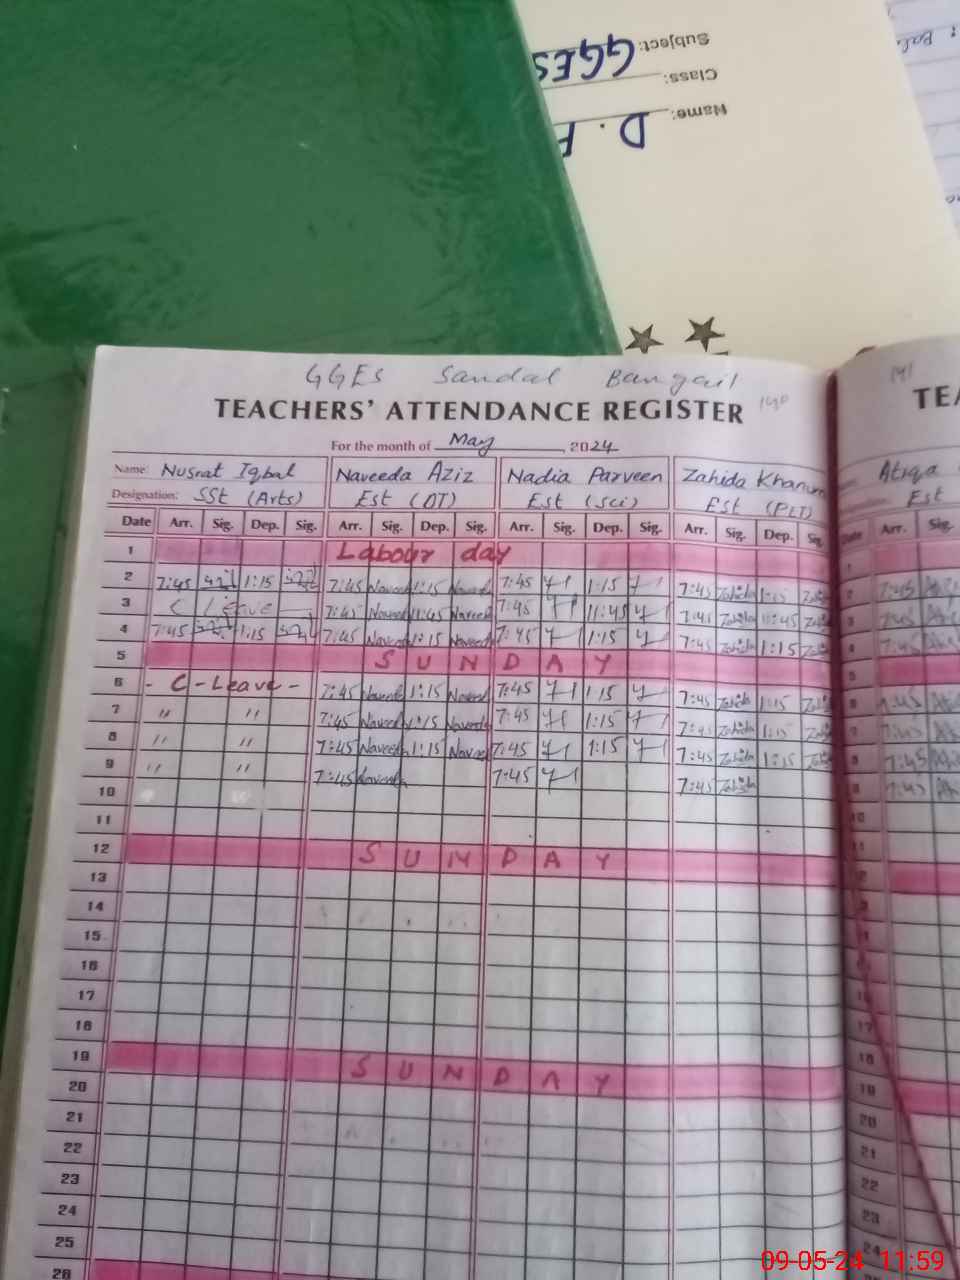 Subject: GGES
Class:
Name: D.
GGES Sandal Bangail
140
141
TEACHERS' ATTENDANCE REGISTER
TEA
For the month of May, 2024
Name: Nusrat Iqbal Naveeda Aziz Nadia Parveen Zahida Khanum Atiqa
Designation: SSt (Arts) Est (DT) Est (Sci) Est (PLT) Est
Date Arr. Sig. Dep. Sig. Arr. Sig. Dep. Sig. Arr. Sig. Dep. Sig. Arr. Sig. Dep. Sig. Date Arr. Sig.
1 Labour day
2 7:45 1:15 7:45 Naveeda 1:15 Naveeda 7:45 1:15 7:45 Zahida 1:15 Zahida 2 7:45
3 C Leave 7:45 Naveeda 11:45 Naveeda 7:45 11:45 7:45 Zahida 11:45 Zahida 3 7:45
4 7:45 1:15 7:45 Naveeda 1:15 Naveeda 7:45 1:15 7:45 Zahida 1:15 Zahida 4 7:45
5 SUNDAY 5
6 - C - Leave - 7:45 Naveeda 1:15 Naveeda 7:45 1:15 7:45 Zahida 1:15 Zahida 6 7:45
7 " " 7:45 Naveeda 1:15 Naveeda 7:45 1:15 7:45 Zahida 1:15 Zahida 7 7:45
8 " " 7:45 Naveeda 1:15 Naveeda 7:45 1:15 7:45 Zahida 1:15 Zahida 8 7:45
9 " " 7:45 Naveeda 7:45 7:45 Zahida 9 7:45
10 10
11 11
12 SUNDAY 12
13
14
15
16
17 17
18 18
19 SUNDAY 19
20 20
21 21
22 22
23 23
24 24
25
26
09-05-24 11:59